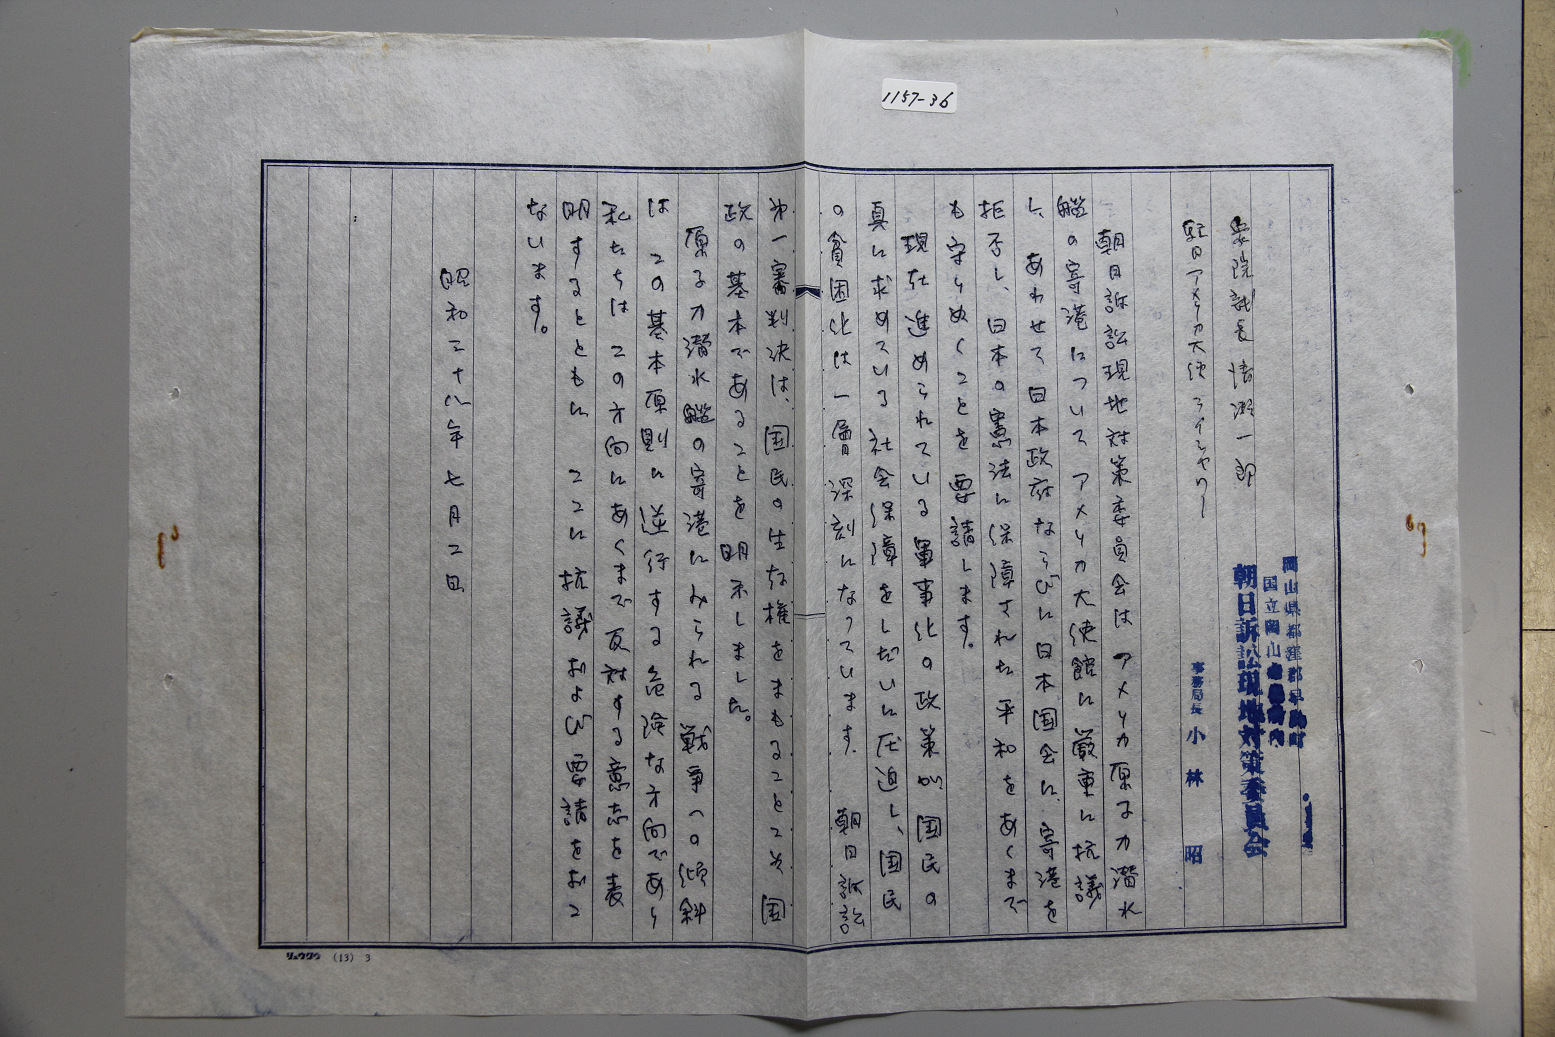 1157-36
衆院議長 清瀬一郎
駐日アメリカ大使 ライシャワー
岡山県都窪郡早島町
国立岡山
朝日訴訟現地対策委員会
事務局長 小林 昭
朝日訴訟現地対策委員会は アメリカ原子力潜水
艦の寄港について アメリカ大使館に厳重に抗議
し、あわせて日本政府ならびに日本国会に、寄港を
拒否し、日本の憲法に保障された平和をあくまで
も守りぬくことを要請します。
現在進められている軍事化の政策が国民の
真に求めている社会保障をしだいに圧迫し、国民
の貧困化は一層深刻になっています。朝日訴訟
第一審判決は、国民の生存権をまもることこそ国
政の基本であることを明示しました。
原子力潜水艦の寄港にみられる戦争への傾斜
は この基本原則に逆行する危険な方向であり
私たちはこの方向にあくまで反対する意志を表
明するとともに ここに抗議および要請をおこ
ないます。
昭和三十八年七月二日
リュウグウ (13) 3